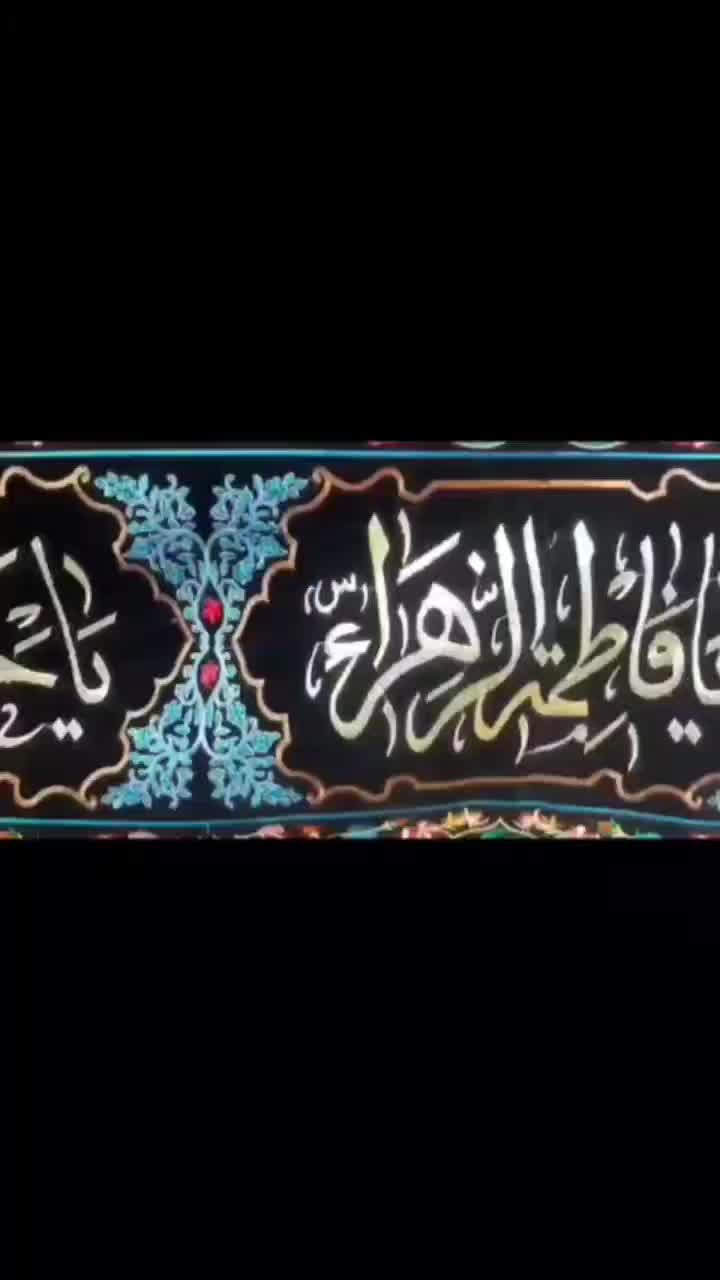 یا فاطِمَة الزَّهراء (س)
یا